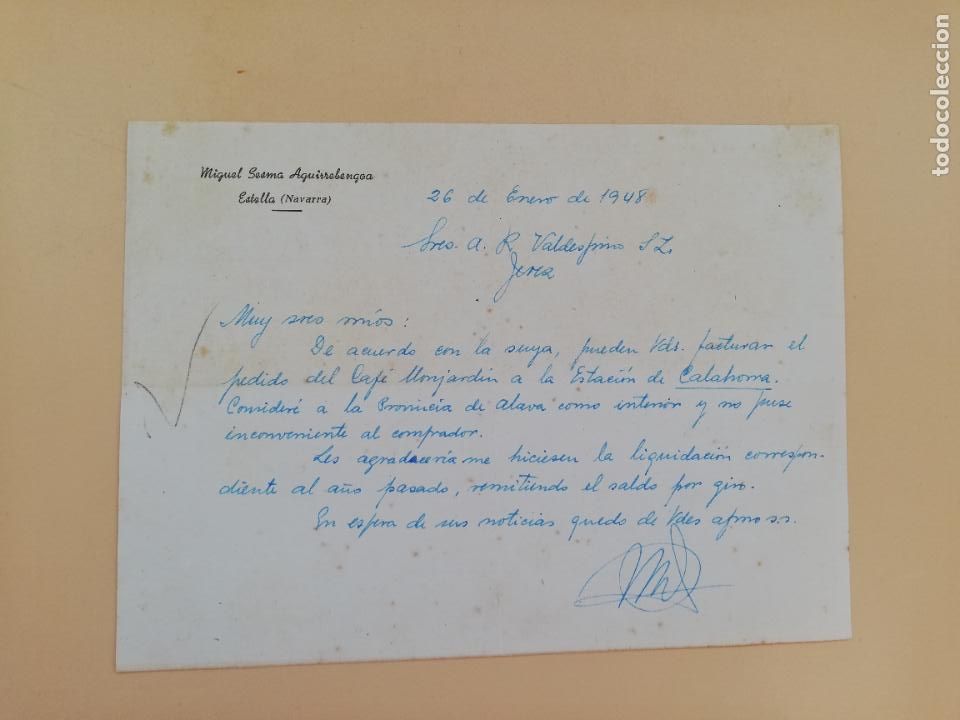 Miguel Sesma Aguirrebengoa
Estella (Navarra)
26 de Enero de 1948
Sres. A. R. Valdespino S.L.
Jerez
Muy sres míos:
De acuerdo con la suya, pueden Vds. facturar el
pedido del Café Monjardin a la Estación de Calahorra.
Consideré a la Provincia de Alava como interior y no puse
inconveniente al comprador.
Les agradecería me hiciesen la liquidación correspon-
diente al año pasado, remitiendo el saldo por giro.
En espera de sus noticias quedo de Vdes afmo s.s.
todocoleccion